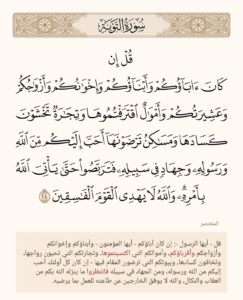 سُورَةُ التَّوْبَةِ
قُلْ إِن
كَانَ ءَابَآؤُكُمْ وَأَبْنَآؤُكُمْ وَإِخْوَٰنُكُمْ وَأَزْوَٰجُكُمْ
وَعَشِيرَتُكُمْ وَأَمْوَٰلٌ ٱقْتَرَفْتُمُوهَا وَتِجَٰرَةٌ تَخْشَوْنَ
كَسَادَهَا وَمَسَٰكِنُ تَرْضَوْنَهَآ أَحَبَّ إِلَيْكُم مِّنَ ٱللَّهِ
وَرَسُولِهِۦ وَجِهَادٍ فِى سَبِيلِهِۦ فَتَرَبَّصُوا۟ حَتَّىٰ يَأْتِىَ ٱللَّهُ
بِأَمْرِهِۦ ۗ وَٱللَّهُ لَا يَهْدِى ٱلْقَوْمَ ٱلْفَٰسِقِينَ ٢٤
المختصر
قل - أيها الرسول -: إن كان آباؤكم - أيها المؤمنون - وأبناؤكم وإخوانكم
وأزواجكم وأقرباؤكم، وأموالكم التي اكتسبتموها، وتجارتكم التي تحبون رواجها،
وتخافون كسادها، وبيوتكم التي ترضون المقام فيها - إن كان كل أولئك أحب
إليكم من الله ورسوله، ومن الجهاد في سبيله فانتظروا ما ينزله الله بكم من
العقاب والنكال، والله لا يوفق الخارجين عن طاعته للعمل بما يرضيه.